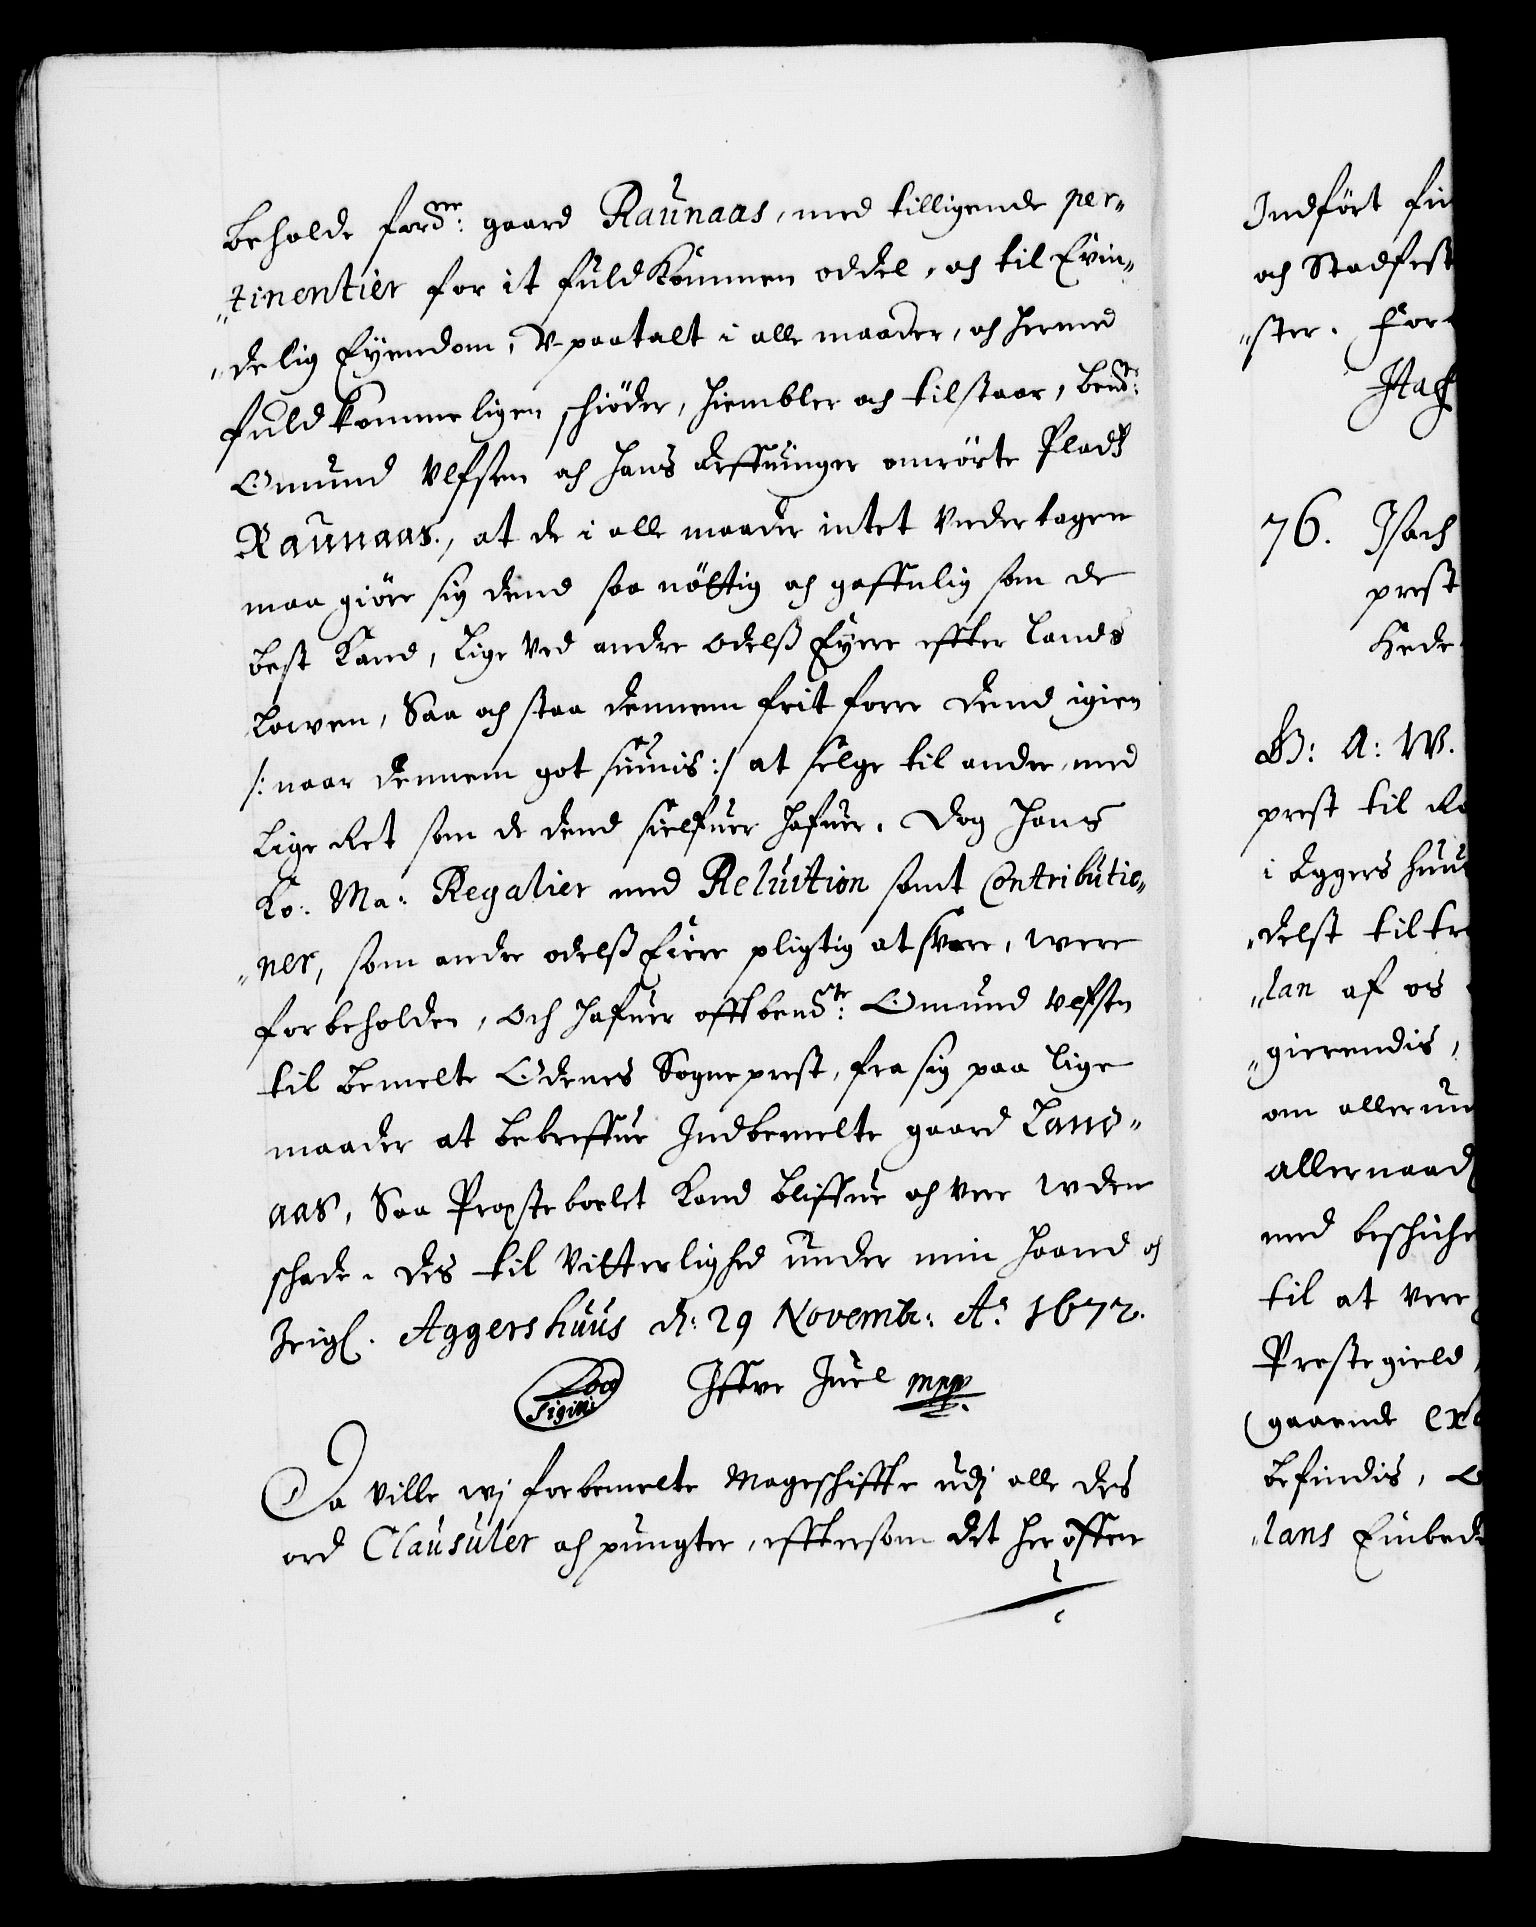 beholde fordne: gaard Raunaas, med tilligende per„
„tinentier for it fuldkommen oddel, och til Evin„
„delig Eyendom, V-paatalt i alle maader, och hermed
fuldkommeligen schiöder, hiembler och tilstaar, bemte:
Omund Ulfsen och hans arffuinger omrörte Pladtz
Raunaas., at de i alle maader intet Undertagen
maa giöre sig dend saa nöttig och gaffnlig som de
best kand, lige ved andre odelss Eyere effter lands
lowen, Saa och staa dennem frit forre dend igien
/: naar dennem got siunis :/ at selge til andre, med
lige Ret som de dend sielfuer hafuer. Dog hans
Ko: Ma: Regalier med Reluition samt Contributio„
„ner, som andre odelss Eiere pligtig at svare, were
forbeholden, Och hafuer offtbemte: Omund Ulfsen
til bemelte Odenes Sogneprest, fra sig paa lige
maader at bebreffue Indbemelte gaard Lang„
aas, Saa Prestebolet kand bliffue och vere uden
schade. Des til Vitterlighed under min haand och
Zeigl. Aggershuus d: 29 Novemb: Ao 1672.
Loco Sigilli Iffver Juel mpp
Da ville wj forbemelte Mageschiffte udj alle des
ord Clausuler och pungter, efftersom det her offuen
Indfört
och Stadfest
„ster. For
Haf
76. Isach
prest
Hede
G: A: W.
prest til
i Aggershuus
„delst tiltr
„lan af os
„gierendis,
om allerun
allernaad
med beschich
til at vere
Prestegield
gaaende ex
befindis,
„lans Embed